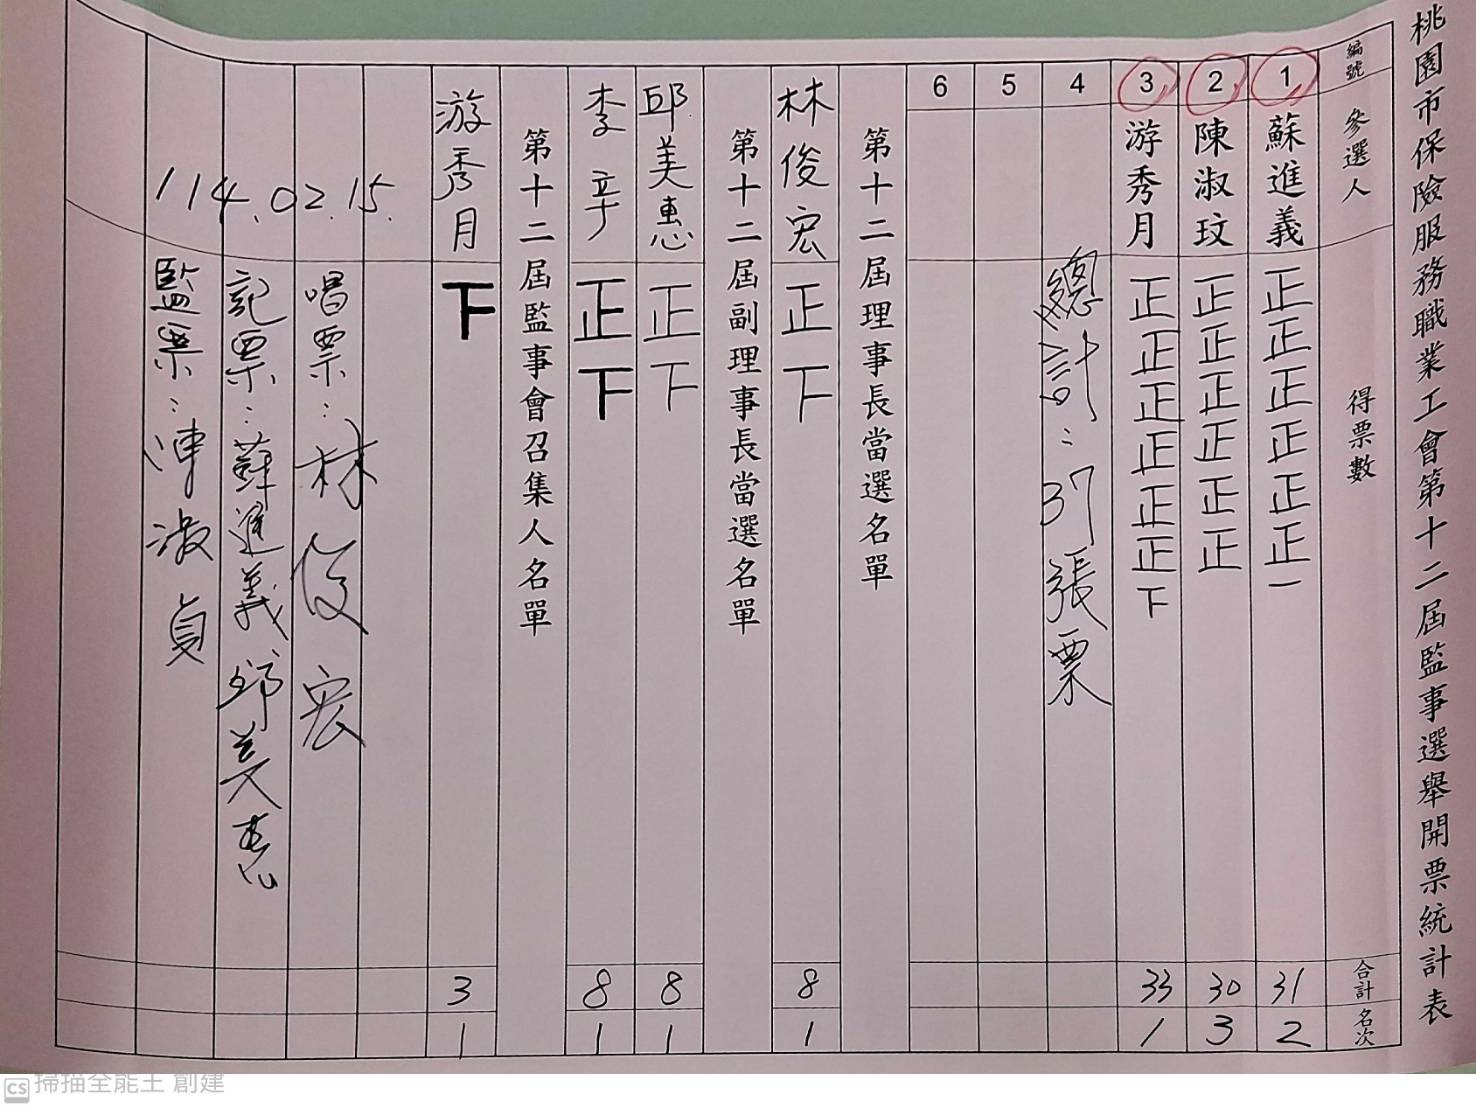 桃園市保險服務職業工會第十二屆監事選舉開票統計表
編號 參選人 得票數 合計 名次
1 蘇進義 正正正正正正一 31 2
2 陳淑玟 正正正正正正 30 3
3 游秀月 正正正正正正下 33 1
4 總計:37張票
5
6
第十二屆理事長當選名單
林俊宏 正下 8 1
第十二屆副理事長當選名單
邱美惠 正下 8 1
李 正下 8 1
第十二屆監事會召集人名單
游秀月 下 3 1
114.02.15.
唱票:林俊宏
記票:蘇進義 邱美惠
監票:陳淑貞
CS 掃描全能王 創建